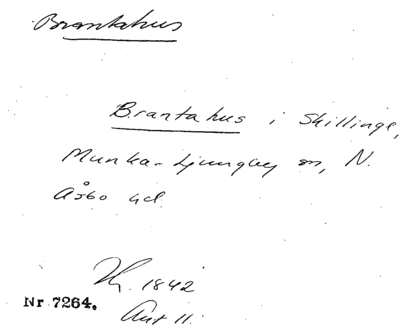 Brantahus
Brantahus i Skillinge,
Munka-Ljungby sn, N.
Åsbo hd.
1842
Nr 7264.
Ant 11.